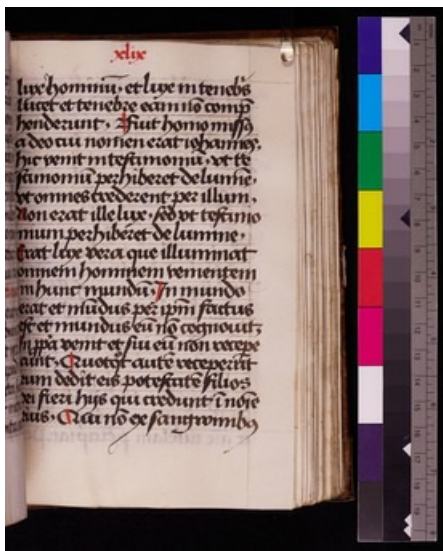 xlix
luxe hominū. et luxe in tenebris
lucet et tenebre eam nō comp
henderunt. Fuit homo missꝰ
a deo cui nomen erat iohannes.
hic venit in testimoniū. vt te
stimoniū perhiberet de lumīe.
vt omnes crederent per illum.
non erat ille lux. sed vt testimo
nium perhiberet de lumine.
Erat lux vera que illuminat
omnem hominem venientem
in hunc mundū. In mundo
erat et mūdus per ipm factus
est et mundus eū nō cognouit
In ppa venit et sui eū non recepe
runt. Quotqt autē receperūt
eum dedit eis potestatē filios
dei fieri hys qui credunt ī noīe
eius. Qui nō ex sanguinibꝰ